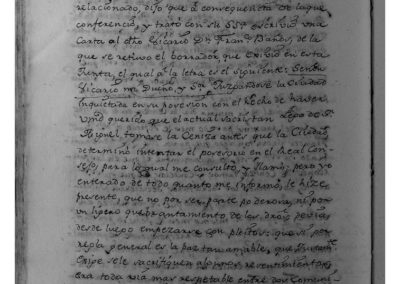 relacionado, dijo que a consequencia de la que
conferenció, y trató con su SSª escrivió una
Carta al dho Vicario Dn Franco Baños, de la
que se retuvo el borrador, que exivió en esta
Junta, el qual a la letra es el siguiente: Señor
Vicario mi Dueño, y Sr. Juzgandose la Ciudad
inquietada en su posesion con el hecho de haver
Vmd querido que el actual Sacristan
Miguel tomase la Ceniza antes que la Ciudad
determinó intentar el posesorio en el Real Con-
sejo, para lo qual me consultó, y llamó; pero yo
enterado de todo quanto me informó, le hize
presente, que no por ser parte poderosa, ni por
un ligero quebrantamento de los dros devia,
desde luego empezarse con pleitos: que si por
regla general es la paz tan amable, que
Exige se le sacrifiquen algunos resentimientos,
era toda via mas respetable entre dos Comuni-